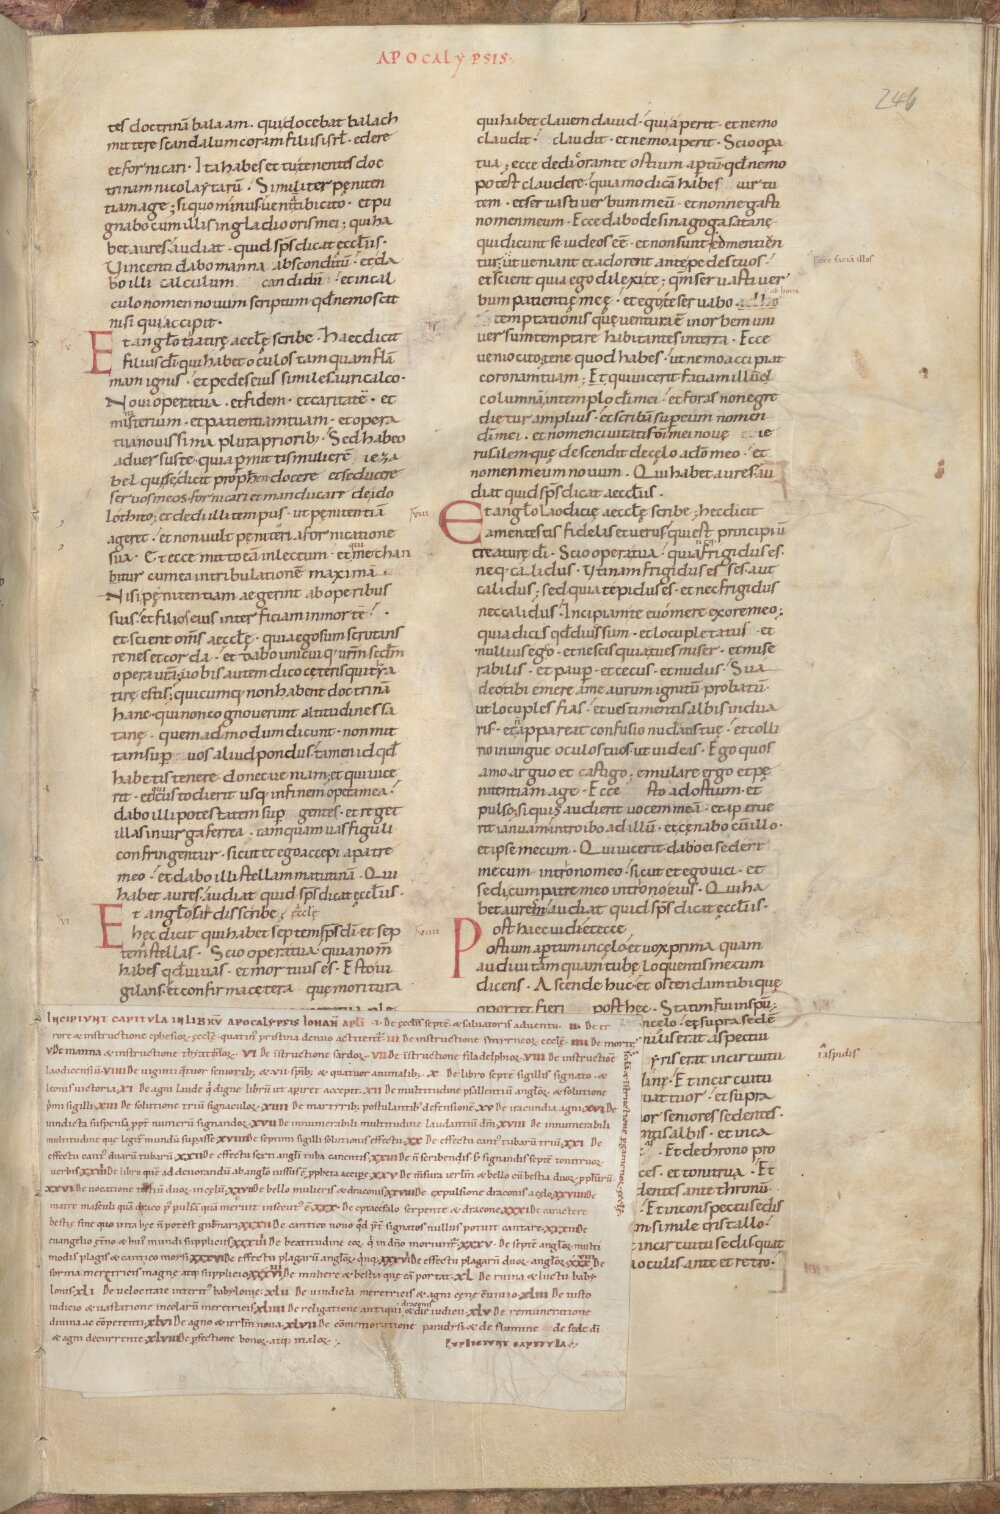 APOCALYPSIS
246
tes doctrinā balaam · qui docebat balach
mittere scandalum coram filiis isrl · edere
et fornicari · Ita habes et tu tenentes doc
trinam nicolaytarū · Similiter pęniten
tiam age ; si quo minus ueniā tibi cito · et pu
gnabo cum illis in gladio oris mei ; qui ha
bet aures audiat · quid sp̄s dicat ęccl̄iis ·
Vincenti dabo manna absconditū · et da
bo illi calculum candidū · et in cal
culo nomen nouum scriptum qd̄ nemo scit
nisi qui accipit ·
Et anglō tiatirę aecclę scribe · Haec dicit
filius dī qui habet oculos tamquam flā
mam ignis · et pedes eius similes auricalco ·
Noui opera tua · et fidem · et caritatē · et
misterium · et patientiam tuam · et opera
tua nouissima plura priorib; Sed habeo
aduersus te · quia permittis mulierē ieza
bel quę se dicit prophen docere et seducere
seruos meos · fornicari et manducare de ido
lothito ; et dedi illi tempus · ut penitentiā
ageret · et non uult peniteri a fornicatione
sua · Et ecce mitto eā in lectum · et qui męchan
bitur cum ea in tribulatione maximā ·
Nisi pęnitentiam aegerint ab operibus
suis · et filios eius interficiam in morte ·
et scient om̄s aecclę · quia ego sum scrutans
renes et corda · et dabo unicuiq; urm̄ scdm̄
opera ura · uobis autem dico cęteris qui tya
tirę estis ; quicumq; non habent doctrinā
hanc · qui non cognouerunt altitudines sa
tanę · quemadmodum dicunt · non mit
tam sup uos aliud pondus · tamen id qd̄
habetis tenete donec ueniam ; et qui uice
rit · et qui custodierit usq; in finem opera mea ·
dabo illi potestatem sup gentes · et reget
illas in uirga ferrea · tamquam uas figuli
confringentur · sicut et ego accepi a patre
meo · et dabo illi stellam matutinā · Qui
habet aures audiat quid sp̄s dicat ęccl̄iis ·
Et anglō sardis scribe ęcclę
Hęc dicit qui habet septem sp̄s dī et sep
tem stellas · Scio opera tua · quia nom̄
habes qd̄ uiuas · et mortuus es · Esto ui
gilans · et confirma cętera quę moritura
qui habet clauem dauid · qui aperit · et nemo
claudit · claudit · et nemo aperit · Scio opera
tua ; ecce dedi coram te ostium aptū qd̄ nemo
potest claudere · quia modicā habes uirtu
tem · et seruasti uerbum meū · et non negasti
nomen meum · Ecce dabo de sinagoga satanę ·
qui dicunt se iudeos eē · et non sunt sed mentien
tur · ut ueniant et adorent ante pedes tuos ·
Ecce faciā illos
et scient quia ego dilexi te ; qm̄ seruasti uer
bum patientię meę · et ego te seruabo
ab hora
temptationis quę uentura ē in orbem uni
uersum temptare habitantes in terra · Ecce
uenio cito tene quod habes · ut nemo accipiat
coronam tuam ; Et qui uicerit faciam illud
columnā in templo di mei · et foras non egre
dietur amplius · et scribā super eum nomen
dī mei · et nomen ciuitatis dī mei nouę ie
rusalem quę descendit de cęlo a do meo · et
nomen meum nouum · Qui habet aures au
diat quid sp̄s dicat aeccl̄iis ·
Et anglō laodicię aecclę scribe ; hęc dicit
amen testis fidelis et uerus qui est principiū
creaturę dī · Scio opera tua · quia frigidus es ·
neq; calidus · Utinam frigidus esses aut
calidus ; sed quia tepidus es · et nec frigidus
nec calidus · Incipiam te euomere ex ore meo ;
quia dicis qd̄ diues sum · et locupletatus · et
nullius ego · et nescis quia tu es miser · et mise
rabilis · et paup · et cecus · et nudus · Sua
deo tibi emere a me aurum ignitū probatū ·
ut locuples fias · et uestimentis albis indua
ris · et non appareat confusio nuditatis tuę · et colli
rio inungue oculos tuos · ut uideas · Ego quos
amo arguo et castigo ; emulare ergo et pę
nitentiam age · Ecce sto ad ostium · et
pulso ; si quis audierit uocem meā · et aperue
rit ianuam introibo ad illū · et cęnabo cū illo ·
et ipse mecum · Qui uicerit dabo ei sedere
mecum in trono meo · sicut et ego uici · et
sedi cum patre meo in trono eius · Qui ha
bet aurem audiat quid sp̄s dicat ęccl̄iis ·
Post haec uidi et ecce
ostium aptum in cęlo · et uox prima quam
audiui tamquam tubę loquentis mecum
dicens · Ascende huc · et ostendam tibi quę
oportet fieri post hęc · Statim fui in spū ;
in cęlo · et supra sedē
erat aspectui
iaspidis
yris erat in circuitu
Et in circuitu
et supra
seniores sedentes ·
albis · et in ca
Et de throno pro
et tonitrua · Et
ante thronū ·
Et in conspectu sedis
simile cristallo ·
in circuitu sedis quat
oculis ante et retro ·
INCIPIVNT CAPITVLA IN LIBRV̄ APOCALYPSIS IOHAN̄ APL̄I · I · De ęccl̄iis septē & saluatoris aduentu · II · De er
rore & instructione ephesior; ecclę quatin; pristina denuo actitent · III De instructione smyrneor; ecclę · IIII De morte
V De manna & instructione thyatiror; VI De īstructione sardor; VII De īstructione filadelphor; VIII De instructiōe
laodicensiū VIIII De uiginti quatuor seniorib; & VII sp̄ib; & quatuor animalib; X De libro septē sigillis signato · &
leonis uictoria XI De agni laude q̄ digne librū ut apiret accepit XII De multitudine psallentiū anglor; & solutione
pmi sigilli XIII De solutione triū signaculor; XIIII De martyrib; postulantib; defensionē XV De iracundia agni XVI De
uindicta suspensa ppt numerū signandor; XVII De innumerabili multitudine laudantiū dn̄m XVIII De innumerabili
multitudine que legit mundū supasse XVIIII De septimi sigilli solutionis effectu XX De effectu cant tubarū triū XXI De
effectu cant duarū tubarū XXII De effectu sexti angli tuba canentis XXIII De n̄ scribendis & signandis septē tonitruor;
uerbis XXIIII De libro que ad deuorandū ab anglo iussus ē ppheta accipe XXV De m̄sura ierlm̄ & bello cū bestia duor; pphtarū
XXVI De uocatione testiū duor; in cęlū XXVII De bello mulieris & draconis XXVIII De expulsione draconis a cęlo XXVIIII De
matre masculi quā draco psequi quā meruit insecut ē XXX De eptacefalo serpente & dracone XXXI De caractere
bestię sine quo uita hęc n̄ potest gubnari XXXII De cantico nouo qd pt signatos nullus potuit cantare XXXIII De
euangelio ęt̄no & hui mundi suppliciis XXXIIII De beatitudine eor; q in dn̄o moriunt XXXV De septē anglor; multi
modis plagis & cantico morsi XXXVI De effectu plagarū anglor; quinq; XXXVII De effectu plagarū duor; anglor; XXXVIII De
forma meretricis magnę atq; supplicio XXXVIIII De muliere & bestia quę eā portat XL De ruina & luctu baby
lonis XLI De uelocitate interit; babylonię XLII De uindicta meretricis & agni cęnę cōuiuio XLIII De iusto
iudicio & uastatione incolarū meretricis XLIIII De religatione antiqui draconis & die iudicii XLV De remuneratione
diuina ac cōpetenti XLVI De agno & ierlm̄ noua XLVII De cōmemoratione paradysi & de flumine de sede dī
& agni decurrente XLVIII De pfectione bonor; atq; malor;
EXPLICIVNT CAPITVLA